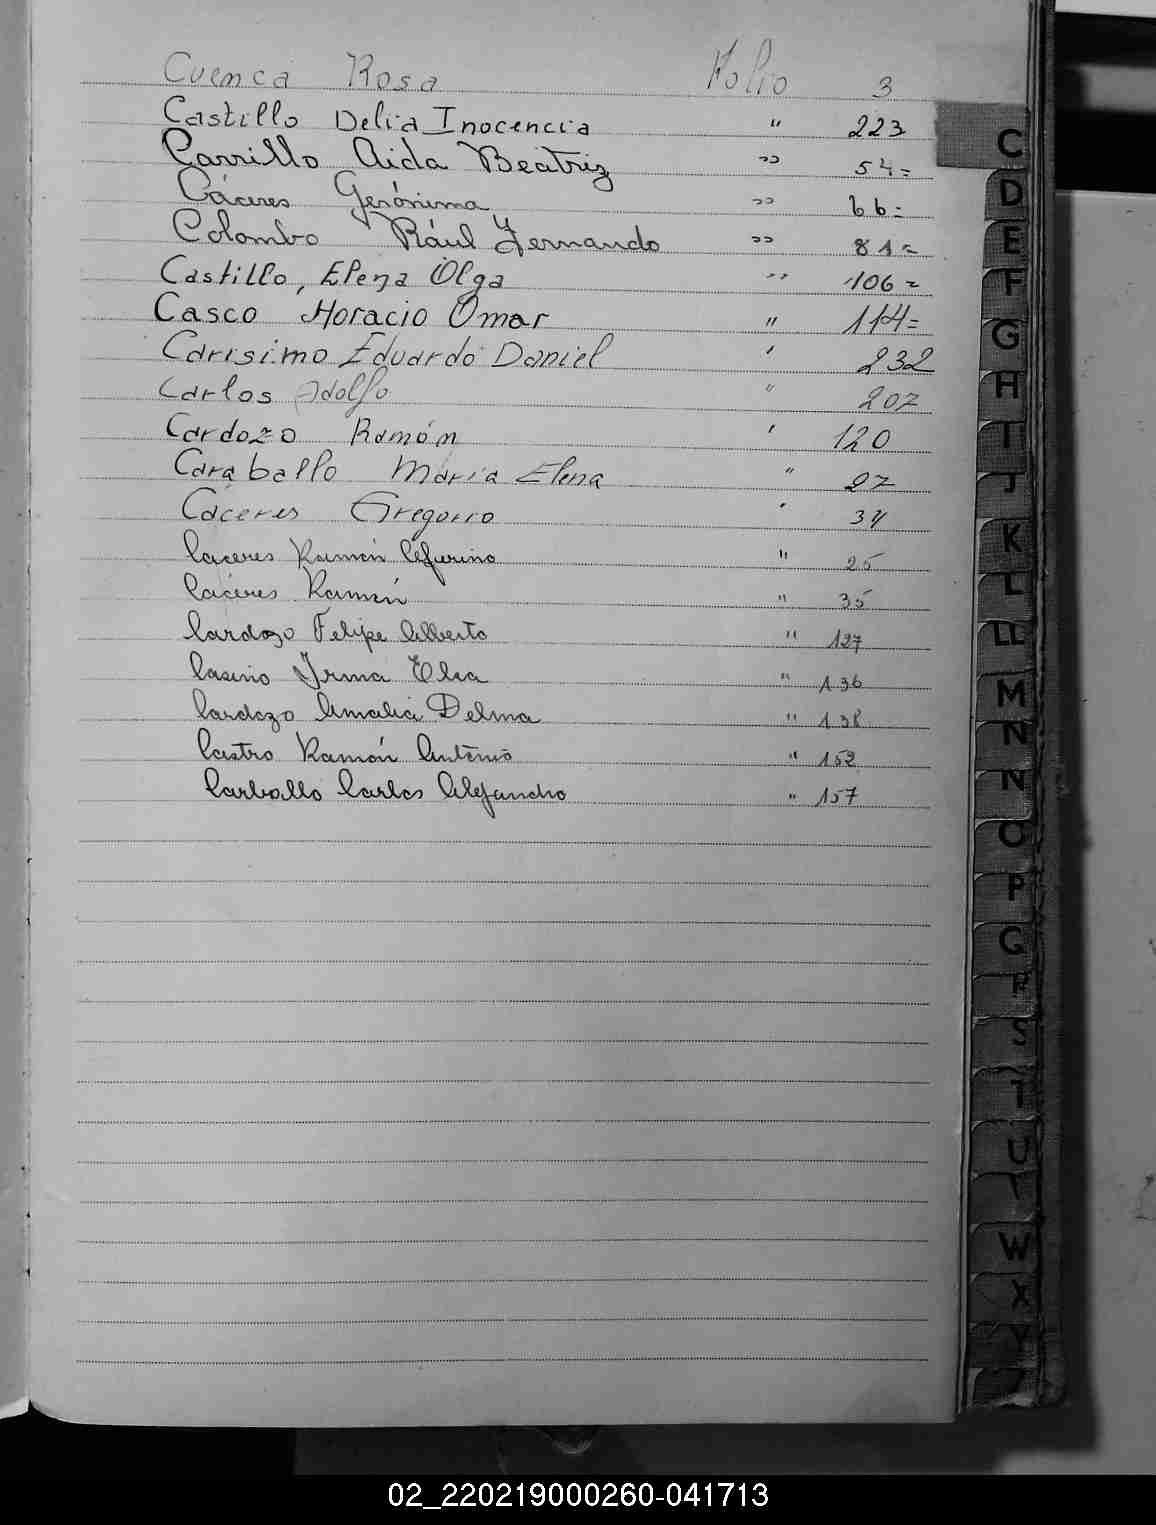 Cuenca Rosa Folio 3
Castillo Delia Inocencia " 223
Carrillo Aida Beatriz " 54=
Cáceres Gerónima " 66=
Colombo Rául Fernando " 81=
Castillo, Elena Olga " 106=
Casco Horacio Omar " 114=
Carisimo Eduardo Daniel " 232
Carlos Adolfo " 207
Cardozo Ramón " 120
Caraballo Maria Elena " 27
Caceres Gregorio "
Caceres Ramón Ceferino " 25
Caceres Ramón " 35
Cardozo Felipe Alberto " 127
Casino Irma Elsa " 136
Cardozo Amalia Delma " 138
Castro Ramón Antonio " 152
Carballo Carlos Alejandro " 157
C
D
E
F
G
H
I
J
K
L
LL
M
N
N
O
P
Q
R
S
T
U
W
X
Y
02_220219000260-041713